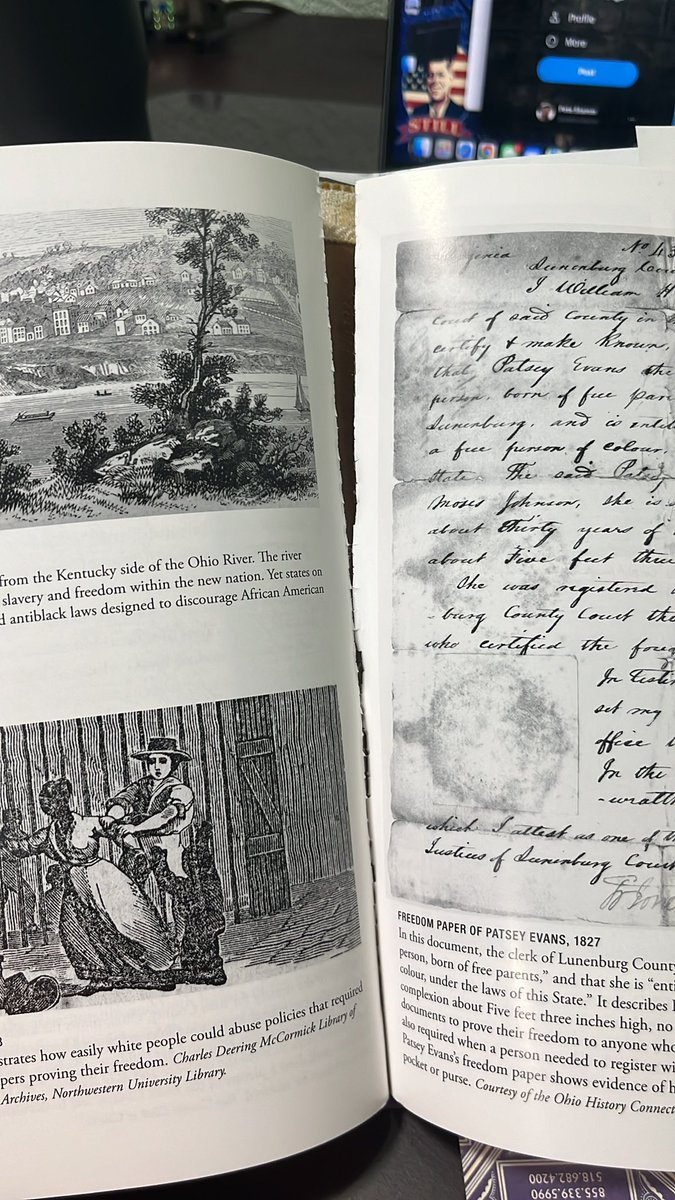 Profile
More
Post
STILL
from the Kentucky side of the Ohio River. The river
slavery and freedom within the new nation. Yet states on
d antiblack laws designed to discourage African American
strates how easily white people could abuse policies that required
pers proving their freedom. Charles Deering McCormick Library of
Archives, Northwestern University Library.
No 43
Lunenburg
I William H
Court of said County in
certify & make Known,
that, Patsey Evans
person, born of free
Lunenburg, and is
a free person of colour,
State. The said Patsy
Moses Johnson, she is
about thirty years of
about Five feet three
She was registered
-burg County Court the
who certified the
set my
office
In the
which I attest as one of
Justices of Lunenburg Court
FREEDOM PAPER OF PATSEY EVANS, 1827
In this document, the clerk of Lunenburg County
person, born of free parents,” and that she is “enti
colour, under the laws of this State.” It describes
complexion about Five feet three inches high, no
documents to prove their freedom to anyone who
also required when a person needed to register wi
Patsey Evans’s freedom paper shows evidence of h
pocket or purse. Courtesy of the Ohio History Connect
518.682.4200
855.339.5990